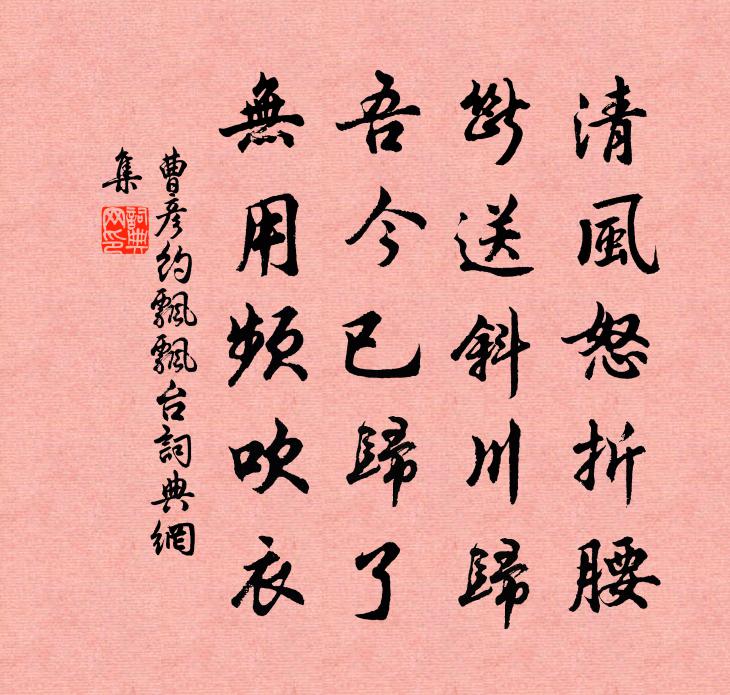 清風怒折腰
斷送斜川歸
吾今已歸了
無用頻吹衣
曹彥約飄飄台詞典網
集
詞典
网印